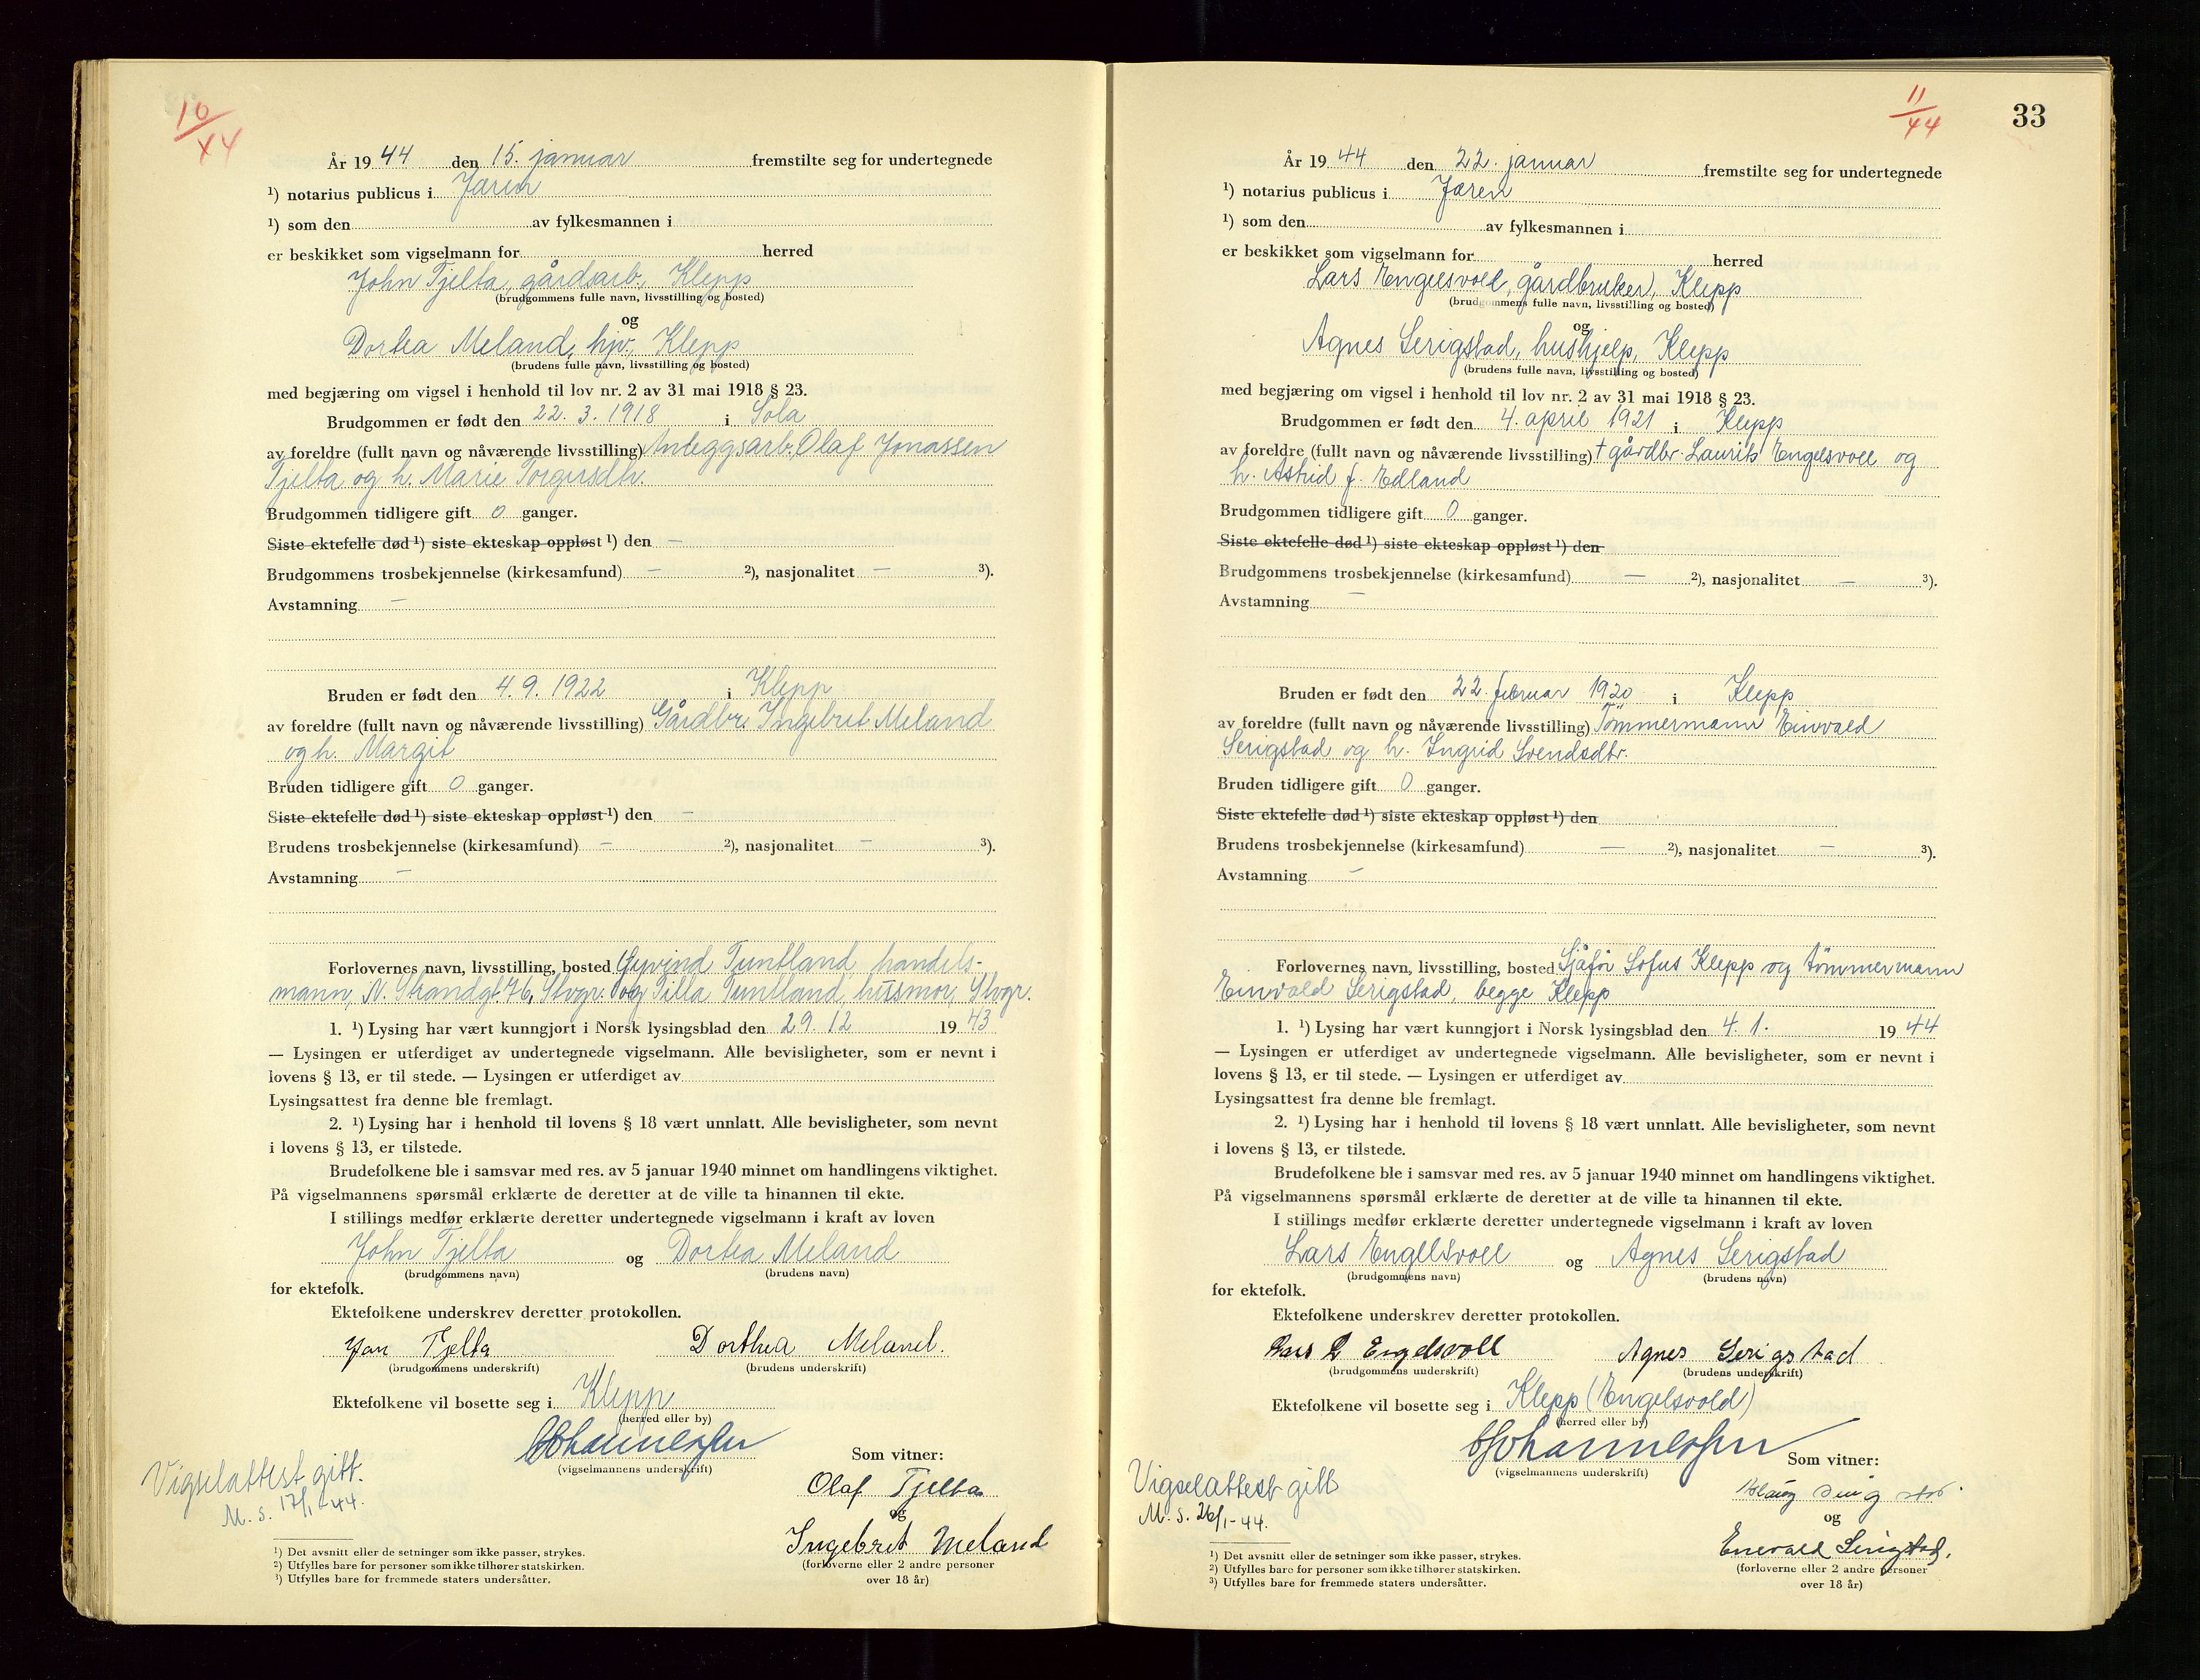 10/44
År 19 44 den 15. januar fremstilte seg for undertegnede
¹) notarius publicus i Jæren
¹) som den av fylkesmannen i
er beskikket som vigselmann for herred
John Tjelta, gårdsarb., Klepp
(brudgommens fulle navn, livsstilling og bosted)
og
Dortea Meland, hjv., Klepp
(brudens fulle navn, livsstilling og bosted)
med begjæring om vigsel i henhold til lov nr. 2 av 31 mai 1918 § 23.
Brudgommen er født den 22. 3. 1918 i Sola
av foreldre (fullt navn og nåværende livsstilling) Anleggsarb. Olaf Jonassen
Tjelta og h. Marie Torgersdtr.
Brudgommen tidligere gift 0 ganger.
Siste ektefelle død ¹) siste ekteskap oppløst ¹) den —
Brudgommens trosbekjennelse (kirkesamfund) — ²), nasjonalitet — ³).
Avstamning —
Bruden er født den 4. 9. 1922 i Klepp
av foreldre (fullt navn og nåværende livsstilling) Gårdbr. Ingebret Meland
og h. Margit
Bruden tidligere gift 0 ganger.
Siste ektefelle død ¹) siste ekteskap oppløst ¹) den —
Brudens trosbekjennelse (kirkesamfund) — ²), nasjonalitet — ³).
Avstamning —
Forlovernes navn, livsstilling, bosted Øyvind Tuntland, handels-
mann, N. Strandgt. 76, Stvgr. og Tilla Tuntland, husmor, Stvgr.
1. ¹) Lysing har vært kunngjort i Norsk lysingsblad den 29. 12 19 43
— Lysingen er utferdiget av undertegnede vigselmann. Alle bevisligheter, som er nevnt i
lovens § 13, er til stede. — Lysingen er utferdiget av
Lysingsattest fra denne ble fremlagt.
2. ¹) Lysing har i henhold til lovens § 18 vært unnlatt. Alle bevisligheter, som nevnt
i lovens § 13, er tilstede.
Brudefolkene ble i samsvar med res. av 5 januar 1940 minnet om handlingens viktighet.
På vigselmannens spørsmål erklærte de deretter at de ville ta hinannen til ekte.
I stillings medfør erklærte deretter undertegnede vigselmann i kraft av loven
John Tjelta og Dortea Meland
(brudgommens navn) (brudens navn)
for ektefolk.
Ektefolkene underskrev deretter protokollen.
Jon Tjelta Dorthea Meland.
(brudgommens underskrift) (brudens underskrift)
Ektefolkene vil bosette seg i Klepp
(herred eller by)
Johannessen
(vigselmannens underskrift)
Som vitner:
Vigselattest gitt.
M. S. 17/1-44.
Olaf Tjelta
og
Ingebret Meland
(forloverne eller 2 andre personer
over 18 år)
¹) Det avsnitt eller de setninger som ikke passer, strykes.
²) Utfylles bare for personer som ikke tilhører statskirken.
³) Utfylles bare for fremmede staters undersåtter.
11/44
33
År 19 44 den 22. januar fremstilte seg for undertegnede
¹) notarius publicus i Jæren
¹) som den av fylkesmannen i
er beskikket som vigselmann for herred
Lars Engelsvoll, gårdbruker, Klepp
(brudgommens fulle navn, livsstilling og bosted)
og
Agnes Serigstad, hushjelp, Klepp
(brudens fulle navn, livsstilling og bosted)
med begjæring om vigsel i henhold til lov nr. 2 av 31 mai 1918 § 23.
Brudgommen er født den 4. april 1921 i Klepp
av foreldre (fullt navn og nåværende livsstilling) † gårdbr. Laurits Engelsvoll og
h. Astrid f. Edland
Brudgommen tidligere gift 0 ganger.
Siste ektefelle død ¹) siste ekteskap oppløst ¹) den
Brudgommens trosbekjennelse (kirkesamfund) — ²), nasjonalitet — ³).
Avstamning —
Bruden er født den 22. februar 1920 i Klepp
av foreldre (fullt navn og nåværende livsstilling) Tömmermann Einvald
Serigstad og h. Ingrid Svendsdtr.
Bruden tidligere gift 0 ganger.
Siste ektefelle død ¹) siste ekteskap oppløst ¹) den
Brudens trosbekjennelse (kirkesamfund) — ²), nasjonalitet — ³).
Avstamning —
Forlovernes navn, livsstilling, bosted Sjåför Sofus Klepp og tömmermann
Einvald Serigstad, begge Klepp
1. ¹) Lysing har vært kunngjort i Norsk lysingsblad den 4. 1. 19 44
— Lysingen er utferdiget av undertegnede vigselmann. Alle bevisligheter, som er nevnt i
lovens § 13, er til stede. — Lysingen er utferdiget av
Lysingsattest fra denne ble fremlagt.
2. ¹) Lysing har i henhold til lovens § 18 vært unnlatt. Alle bevisligheter, som nevnt
i lovens § 13, er tilstede.
Brudefolkene ble i samsvar med res. av 5 januar 1940 minnet om handlingens viktighet.
På vigselmannens spørsmål erklærte de deretter at de ville ta hinannen til ekte.
I stillings medfør erklærte deretter undertegnede vigselmann i kraft av loven
Lars Engelsvoll og Agnes Serigstad
(brudgommens navn) (brudens navn)
for ektefolk.
Ektefolkene underskrev deretter protokollen.
Lars L Engelsvoll Agnes Serigstad
(brudgommens underskrift) (brudens underskrift)
Ektefolkene vil bosette seg i Klepp (Engelsvold)
(herred eller by)
Johannessen
(vigselmannens underskrift)
Som vitner:
Vigselattest gitt
M. S. 26/1-44.
og
Einvald Serigstad.
(forloverne eller 2 andre personer
over 18 år)
¹) Det avsnitt eller de setninger som ikke passer, strykes.
²) Utfylles bare for personer som ikke tilhører statskirken.
³) Utfylles bare for fremmede staters undersåtter.